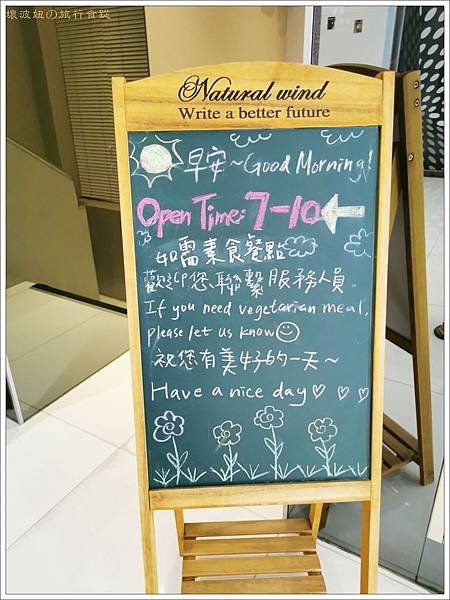 壞波妞の旅行食蹤
Natural wind
Write a better future
早安~Good Morning!
Open Time: 7-10
如需素食餐點
歡迎您聯繫服務人員
If you need vegetarian meal,
please let us know
祝您有美好的一天~
Have a nice day